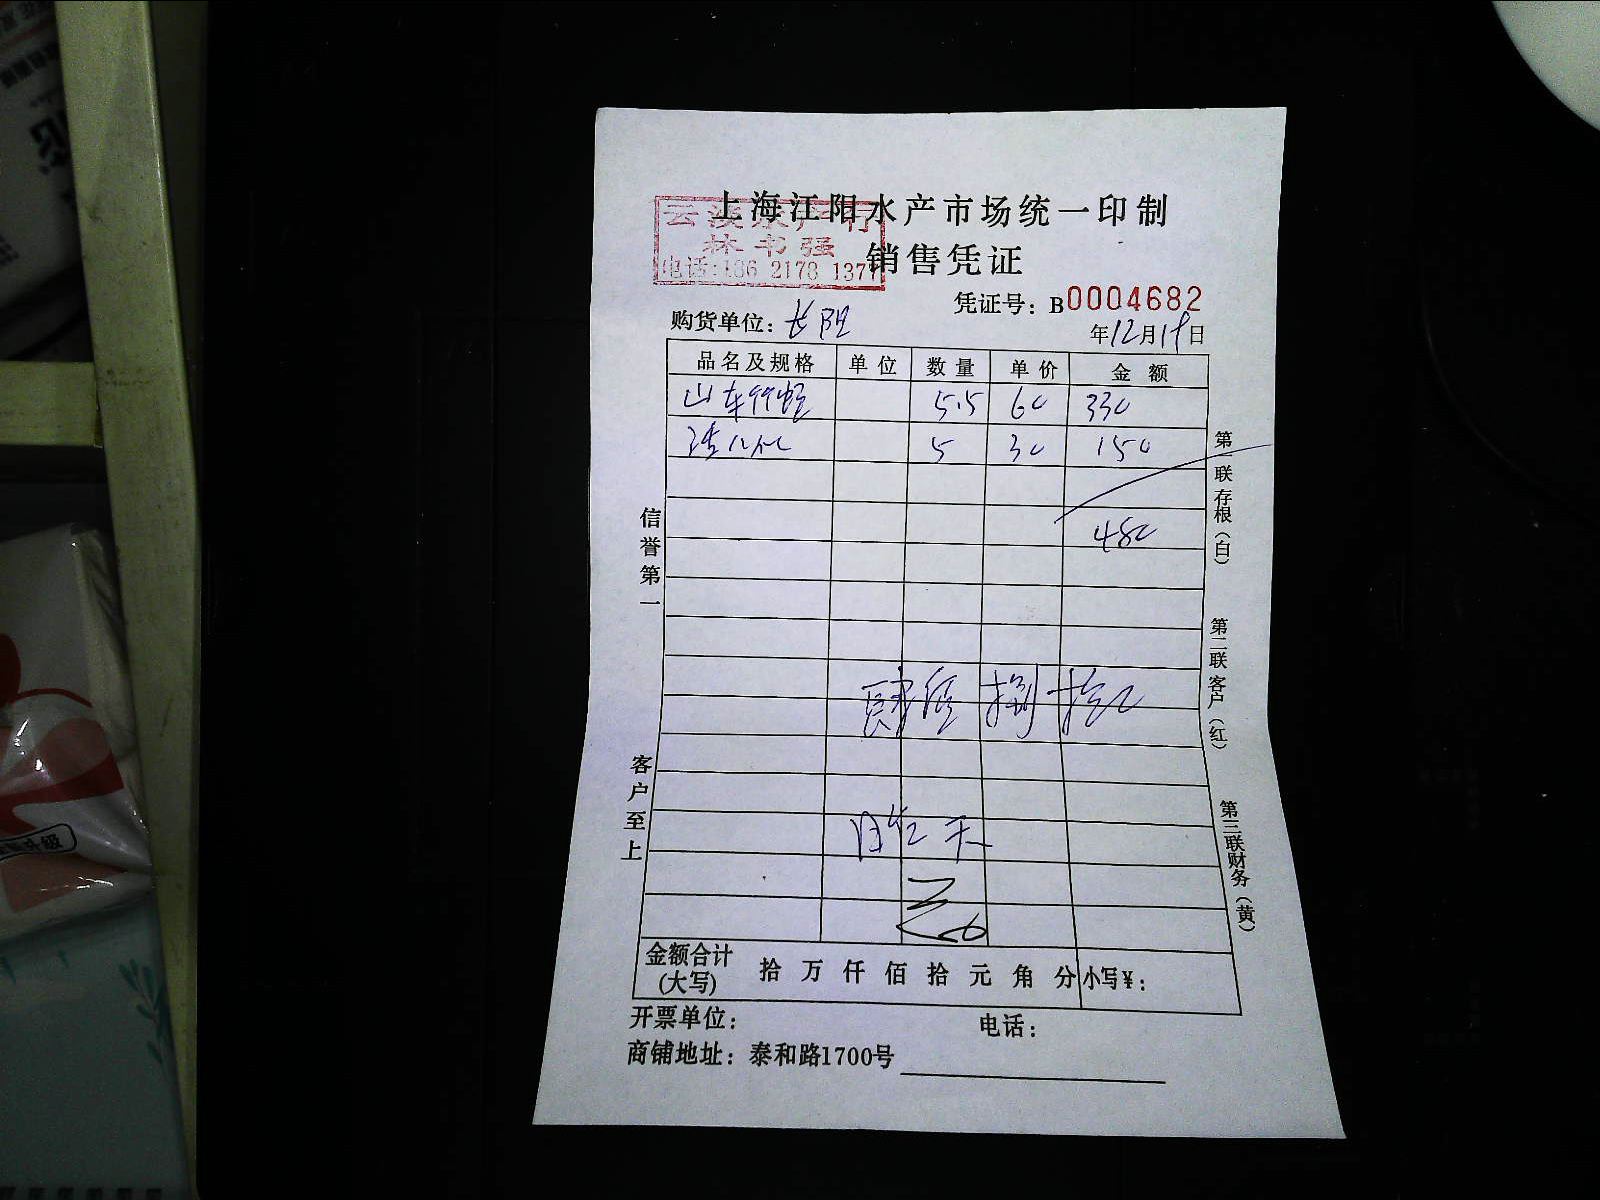 上海江阳水产市场统一印制
销售凭证
林书强
电话:186 2178 1377
凭证号：B0004682
购货单位：长阳
年12月19日
品名及规格 单位 数量 单价 金额
山东 5.5 60 330
5 30 150
480
肆佰捌拾元
信誉第一
客户至上
第一联存根（白）
第二联客户（红）
第三联财务（黄）
金额合计(大写) 拾 万 仟 佰 拾 元 角 分 小写¥：
开票单位： 电话：
商铺地址：泰和路1700号